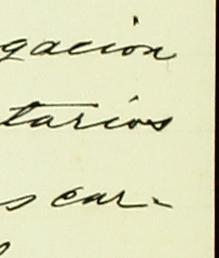 gacion
tarios
s car-